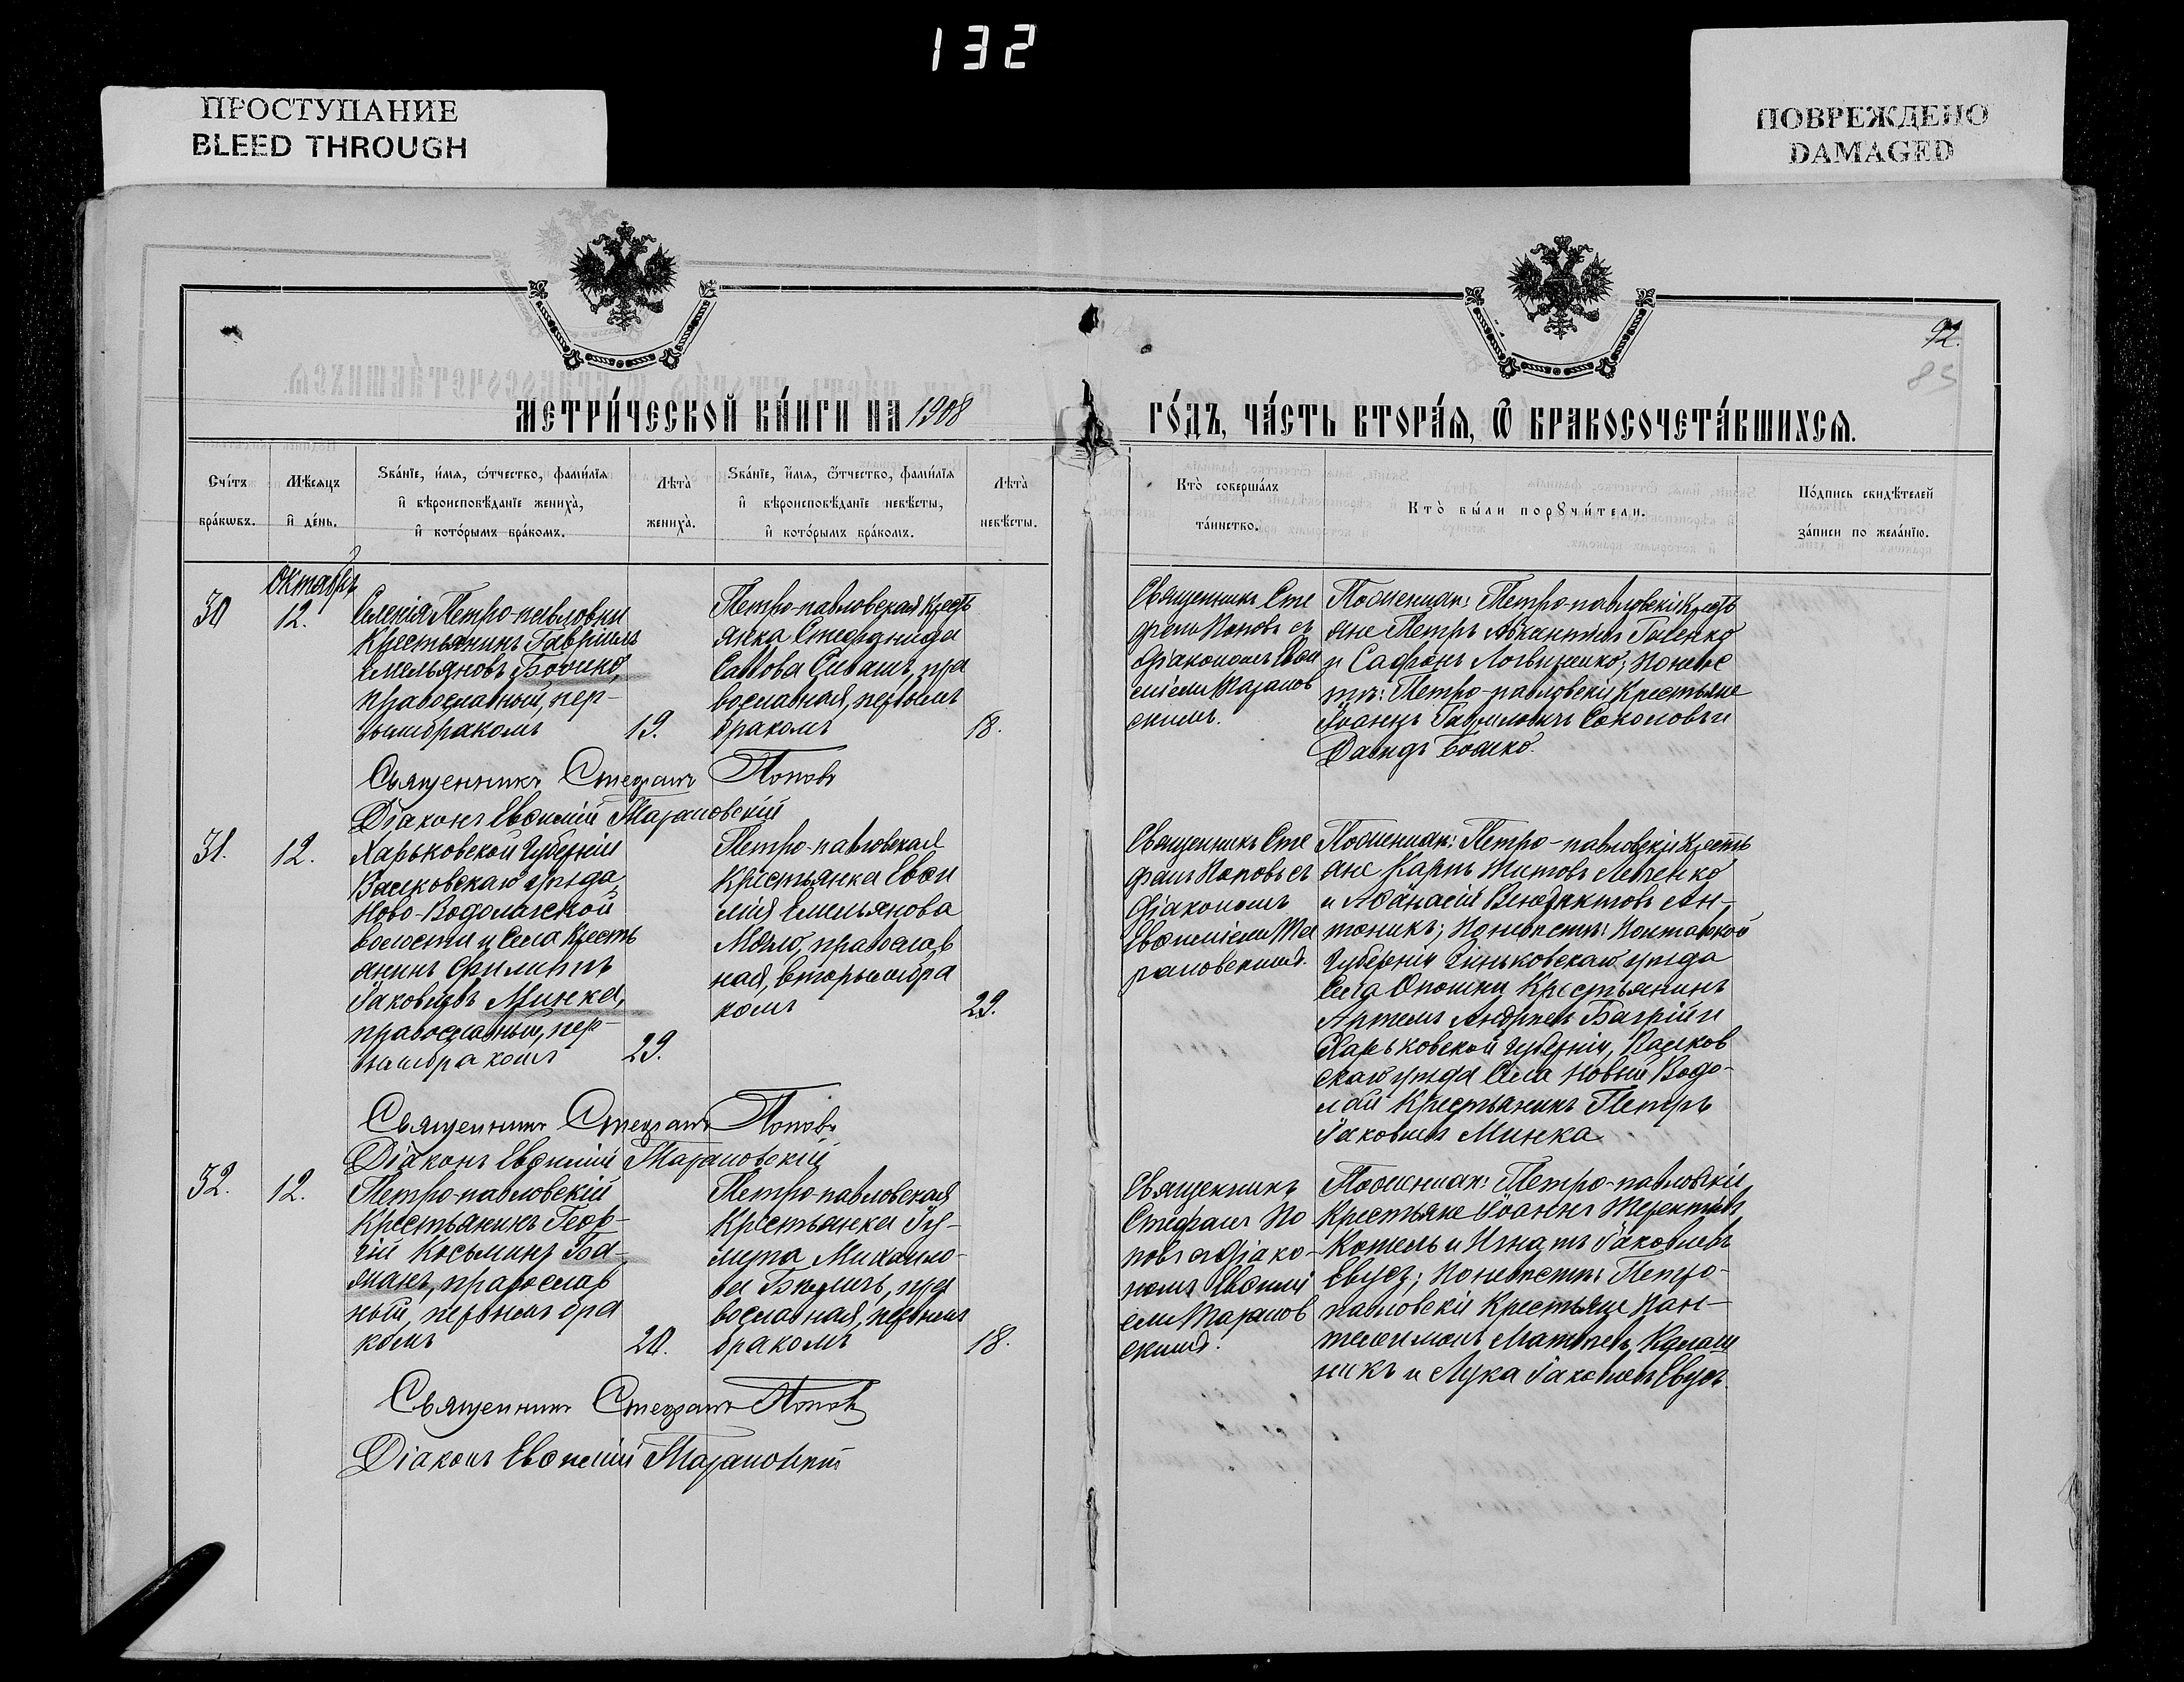 132
ПРОСТУПАНИЕ
BLEED THROUGH
ПОВРЕЖДЕНО
DAMAGED
92.
85
МЕТРИ́ЧЕСКОЙ КНИ́ГИ НА 1908
ГО́ДЪ, ЧА́СТЬ ВТОРА́Я, Ѿ БРАКОСОЧЕТА́ВШИХСЯ.
Сче́тъ
бра́кѡвъ.
Мѣ́сяцъ
и҆ де́нь.
Ѕва́нїе, и҆́мя, ѻ҆́тчество, фами́лїя
и҆ вѣроисповѣ́данїе жениха̀,
и҆ кото́рымъ бра́комъ.
Лѣта̀
жениха̀.
Ѕва́нїе, и҆́мя, ѻ҆́тчество, фами́лїя
и҆ вѣроисповѣ́данїе невѣ́сты,
и҆ кото́рымъ бра́комъ.
Лѣта̀
невѣ́сты.
Кто̀ соверша́лъ
та́инство.
Кто̀ бы́ли порꙋчи́тели.
По́дпись свидѣ́телей
за́писи по жела́нїю.
Октябрь
30
12.
Селенія Петро-павловки
Крестьянинъ Гавріилъ
Емельяновъ
православный, пер-
вымъ бракомъ
19.
Петро-павловская крест
янка
Саввова Сивашъ, пра
вославная, первымъ
бракомъ
18.
Священникъ Сте
фанъ Поповъ съ
діакономъ Евѳи
міемъ
скимъ.
По женихѣ: Петро-павловскіе крестья
яне Петръ
и Сафонъ Логвиненко; по невѣс
тѣ: Петро-павловскіе крестьяне
Іоаннъ Гавриловичъ Соколовъ и
Давидъ
Священникъ Стефанъ Поповъ
Діаконъ Евѳимій
31.
12.
Харьковской губерніи
Валковскаго уѣзда
Ново-Водолагской
волости и села кресть
янинъ Филиппъ
Іаковлевъ Минка,
православный, пер-
вымъ бракомъ
29.
Петро-павловская
крестьянка Евѳи
мія Емельянова
православ
ная, вторымъ бра
комъ
29.
Священникъ Сте
фанъ Поповъ съ
діакономъ
Евѳиміемъ
По женихѣ: Петро-павловскіе кресть
яне Карпъ Титовъ
и Аѳанасій Венедиктовъ Ан-
тоникъ; по невѣстѣ: Полтавской
губерніи Зиньковскаго уѣзда
села Опошни крестьянинъ
Артемъ Андреевъ Багрій и
Харьковской губерніи, Валков
скаго уѣзда села Новый Водо-
лай крестьянинъ Петръ
Іаковлевъ Минка
Священникъ Стефанъ Поповъ
Діаконъ Евѳимій
32.
12.
Петро-павловскій
крестьянинъ Геор-
гій Косьминъ Ба-
православ
ный, первымъ бра
комъ
20.
Петро-павловская
крестьянка Іу-
литта Михаило-
ва пра
вославная, первымъ
бракомъ
18.
Священникъ
Стефанъ По
повъ съ діако-
номъ Евѳимі
емъ
скимъ.
По женихѣ: Петро-павловскіе
крестьяне Іоаннъ Терентіевъ
Котель и Игнатъ Іаковлевъ
Евусъ; по невѣстѣ: Петро-
павловскіе крестьяне Пан-
телеимонъ Матвѣевъ Калаш
никъ и Лука Іаковлевъ Евусъ.
Священникъ Стефанъ Поповъ
Діаконъ Евѳимій